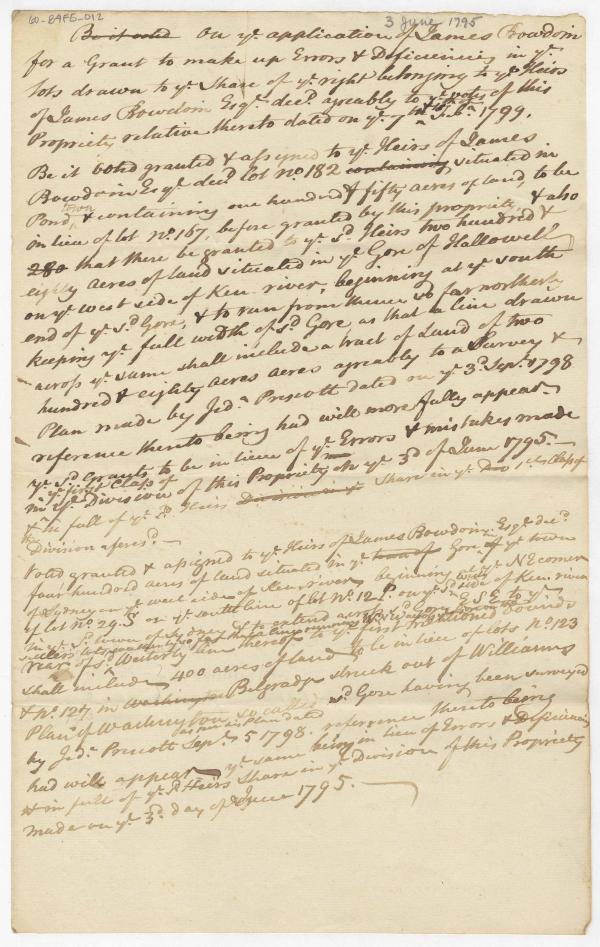 60-84F5-012
3 June 1795
Be it voted On ye. application of James Bowdoin
for a Grant to make up Errors & Deficiencies in ye.
lots drawn to ye. Share of ye. right belonging to ye. Heirs
of James Bowdoin Esqr. decd. agreably to ye. votes of this
Propriety relative thereto dated on ye. 7th Feby. 1799.
Be it voted granted & assigned to ye. Heirs of James
Bowdoin Esqr. decd. lot No. 182 containing situated in
Pond, & containing one hundred & fifty acres of land, to be
in lieu of lot No. 167, before granted by this propriety, & also
280 that there be granted to ye. sd. Heirs two hundred &
eighty acres of land situated in ye. Gore of Hallowell
on ye. west side of Ken. river, beginning at ye. south
end of ye. sd. Gore, & to run from thence so far northerly
keeping ye. full width of sd. Gore, as that a line drawn
across ye. same shall include a tract of Land of two
hundred & eighty acres acres agreably to a Survey &
Plan made by Jeda. Prescott dated on ye. 3d. Sepr. 1798
reference thereto being had will more fully appear
ye. sd. Grants to be in lieu of ye. Errors & mistakes made
in ye. first Class of
ye. Division of this Propriety on ye. 3d of June 1795.
& the full of ye. sd. Heirs Division in ye. Share in ye. 1st. Class of
Division aforesd.
Voted granted & assigned to ye. Heirs of James Bowdoin Esqr. decd.
four hundred acres of land situated in ye. town of Gore of ye. town
of Sydney on ye. west side of Ken. river, beginning at ye. NE corner
of lot No. 29. on ye. south line of lot No. 12 on ye. side of Ken. river
in ye. sd. town of Sydney & to extend across sd. Gore ESE to ye.
rear of sd. Westerly line thereof to ye. first mentioned bounds
shall include 400 acres of land to be in lieu of lots No. 123
& No. 127 in Washington Belgrade struck out of Williams
Plan of Washington so called sd. Gore having been surveyed
as per his Plan dated
by Jeda. Prescott Sepr. 5 1798. reference thereto being
had will appear ye. same being in lieu of Errors & Deficiencies
& in full of ye. sd Heirs Share in ye. Division of this Propriety
made on ye. 3d. day of June 1795.